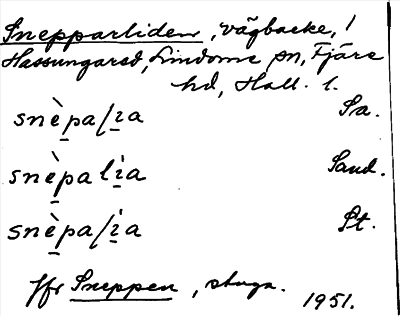 Snepparliden, vägbacke, l
Hassungared, Lindome sn, Fjäre
hd, Hall. l.
snèpalia Sa.
snèpalìa Sand.
snèpalìa St.
Jfr Sneppen, stuga.
1951.